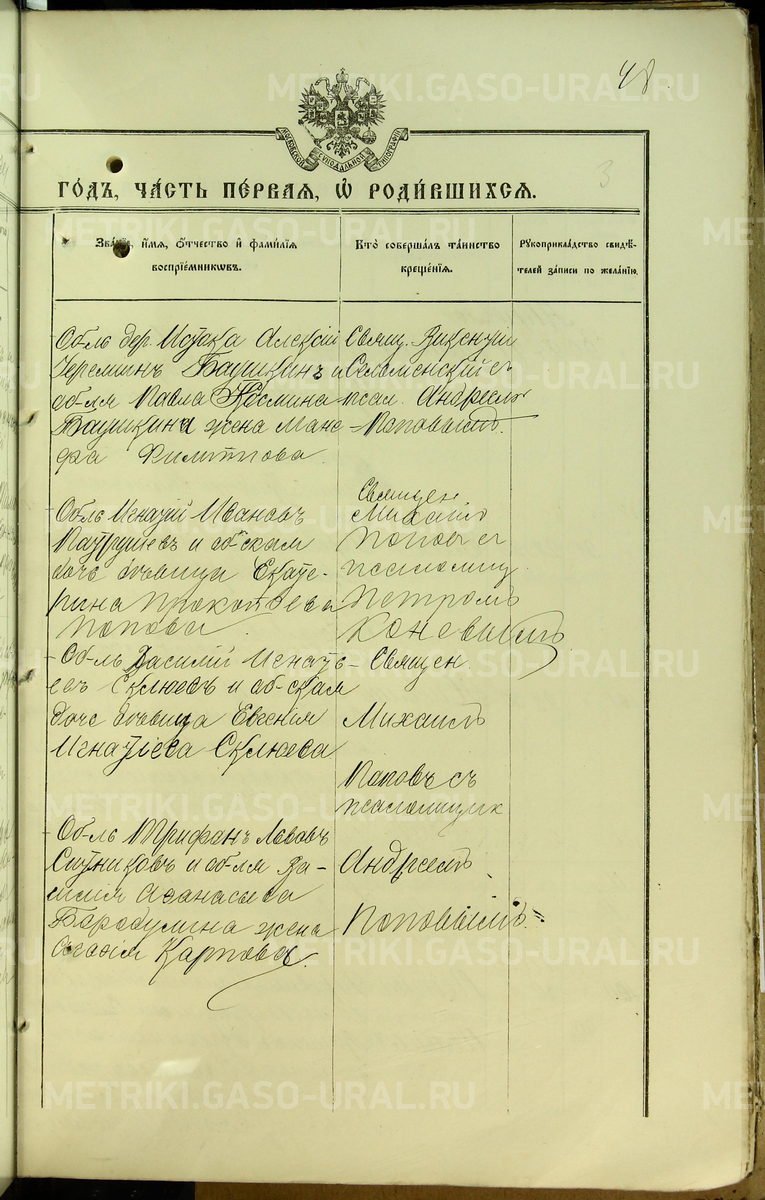 48
МОСКОВСКОЙ СѴНОДАЛЬНОЙ ТИПОГРАФІИ
3
ГОДЪ, ЧАСТЬ ПЕРВАЯ, Ѡ РОДИВШИХСЯ.
Званіе, имя, отчество и фамилія
воспріемниковъ.
Кто совершалъ таинство
крещенія.
Рукоприкладство свидѣ-
телей записи по желанію.
Обль дер. Истока Алексій
Еремин Баушкинъ и
об-ля Павла Космина
Баушкина жена Мане-
фа Филиппова.
Свящ. Викентій
Селеменскій съ
псал. Андреемъ
Поповымъ.
Обль Игнатій Ивановъ
Патрушевъ и об-ская
дочь дѣвица Екате-
рина Прокопьева
Попова.
Священ
Михаилъ
Поповъ съ
псаломщ
Петромъ
Коневымъ
Об-ль Василій Игнать-
евъ Склюевъ и об-ская
дочь дѣвица Евгенія
Игнатіева Склюева
Священ.
Михаилъ
Поповъ съ
псаломщик
Андреемъ
Поповымъ.
Об-ль Трифанъ Львовъ
Ситниковъ и об-ля Ва-
силія Афанасьева
Бородулина жена
Агафія Карпова.
METRIKI.GASO-URAL.RU